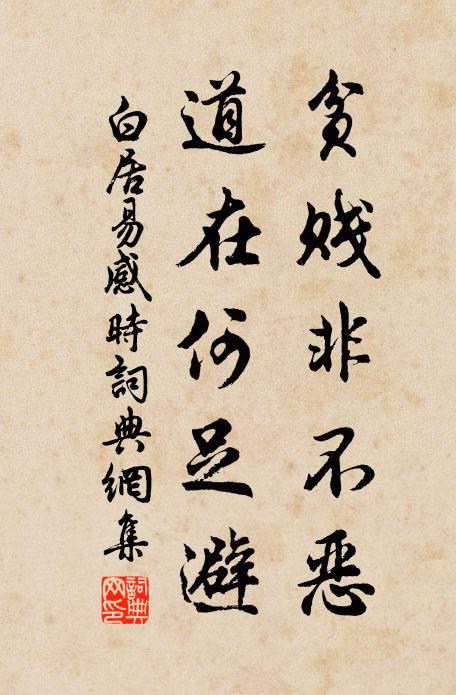 貧賤非不惡
道在何足避
白居易感時詞典網集
詞典
网印